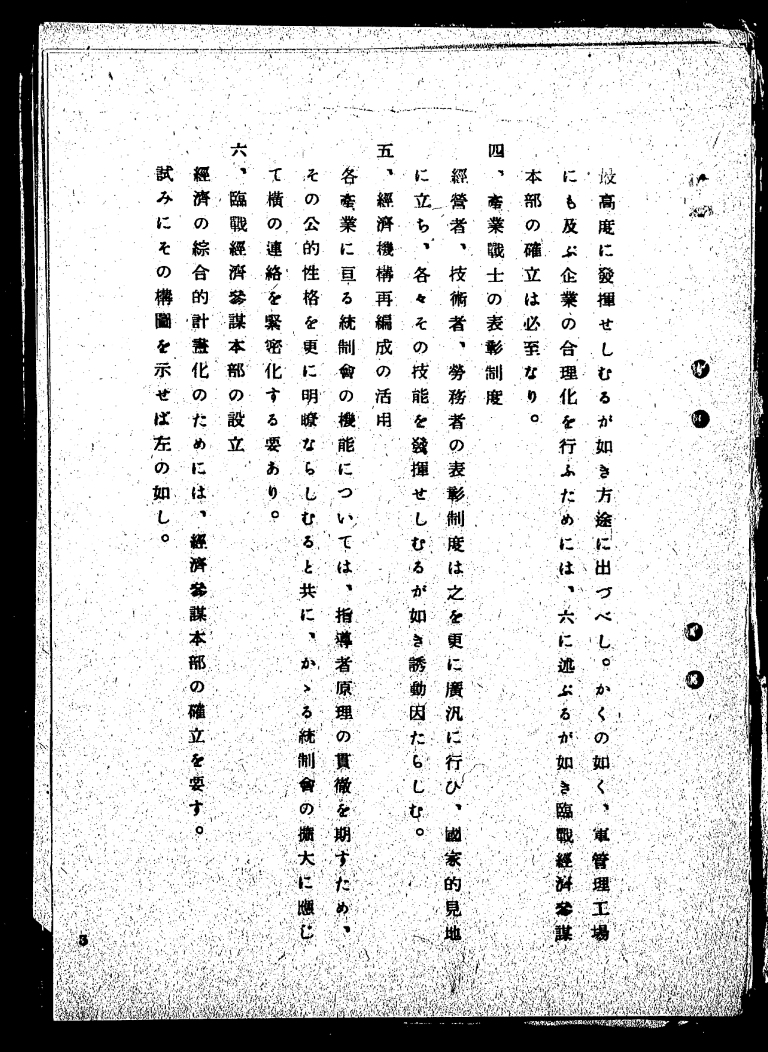 最高度に發揮せしむるが如き方途に出づべし。かくの如く、軍管理工場
にも及ぶ企業の合理化を行ふためには、六に述ぶるが如き臨戰經濟參謀
本部の確立は必至なり。
四、產業戰士の表彰制度
經營者、技術者、勞務者の表彰制度は之を更に廣汎に行ひ、國家的見地
に立ち、各々その技能を發揮せしむるが如き誘動因たらしむ。
五、經濟機構再編成の活用
各產業に亘る統制會の機能については、指導者原理の貫徹を期すため、
その公的性格を更に明瞭ならしむると共に、かゝる統制會の擴大に應じ
て橫の連絡を緊密化する要あり。
六、臨戰經濟參謀本部の設立
經濟の綜合的計畫化のためには、經濟參謀本部の確立を要す。
試みにその構圖を示せば左の如し。
3